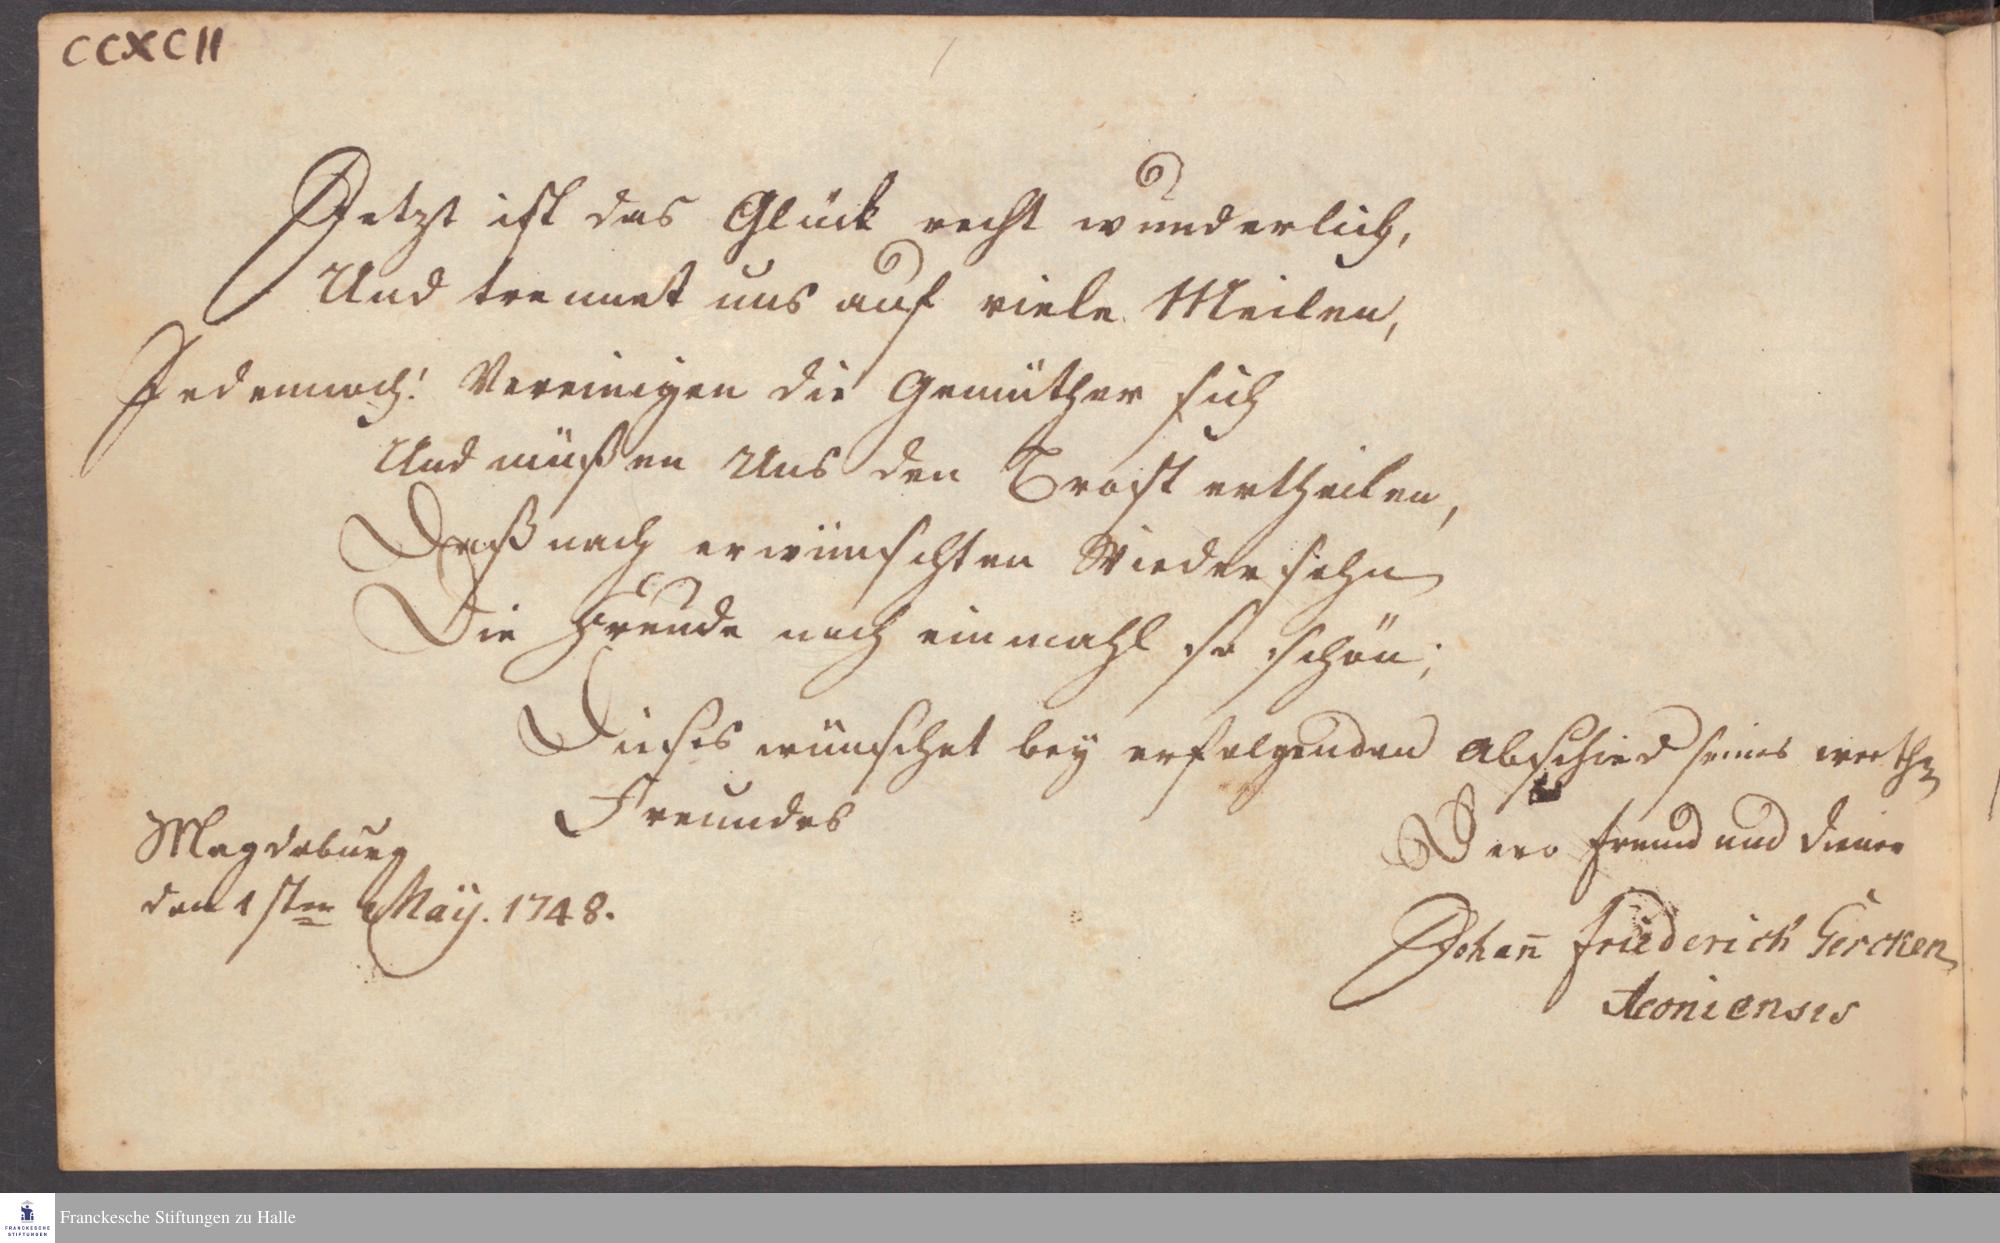 CCXCII
Jetzt ist das Glück recht wunderlich,
Und trennet uns auf viele Meilen,
Jedennoch! Vereinigen die Gemüther sich
Und müßen Uns den Trost ertheilen,
Daß nach erwünschten Wiedersehn
Die Freude noch einmahl so schön;
Dieses wünschet bey erfolgenden Abschied seines werthen
Freundes
Magdeburg
den 1sten Maÿ. 1748.
Dero Freund und Diener
Johan̄ Friederich Gercken
FRANCKESCHE STIFTUNGEN
Franckesche Stiftungen zu Halle